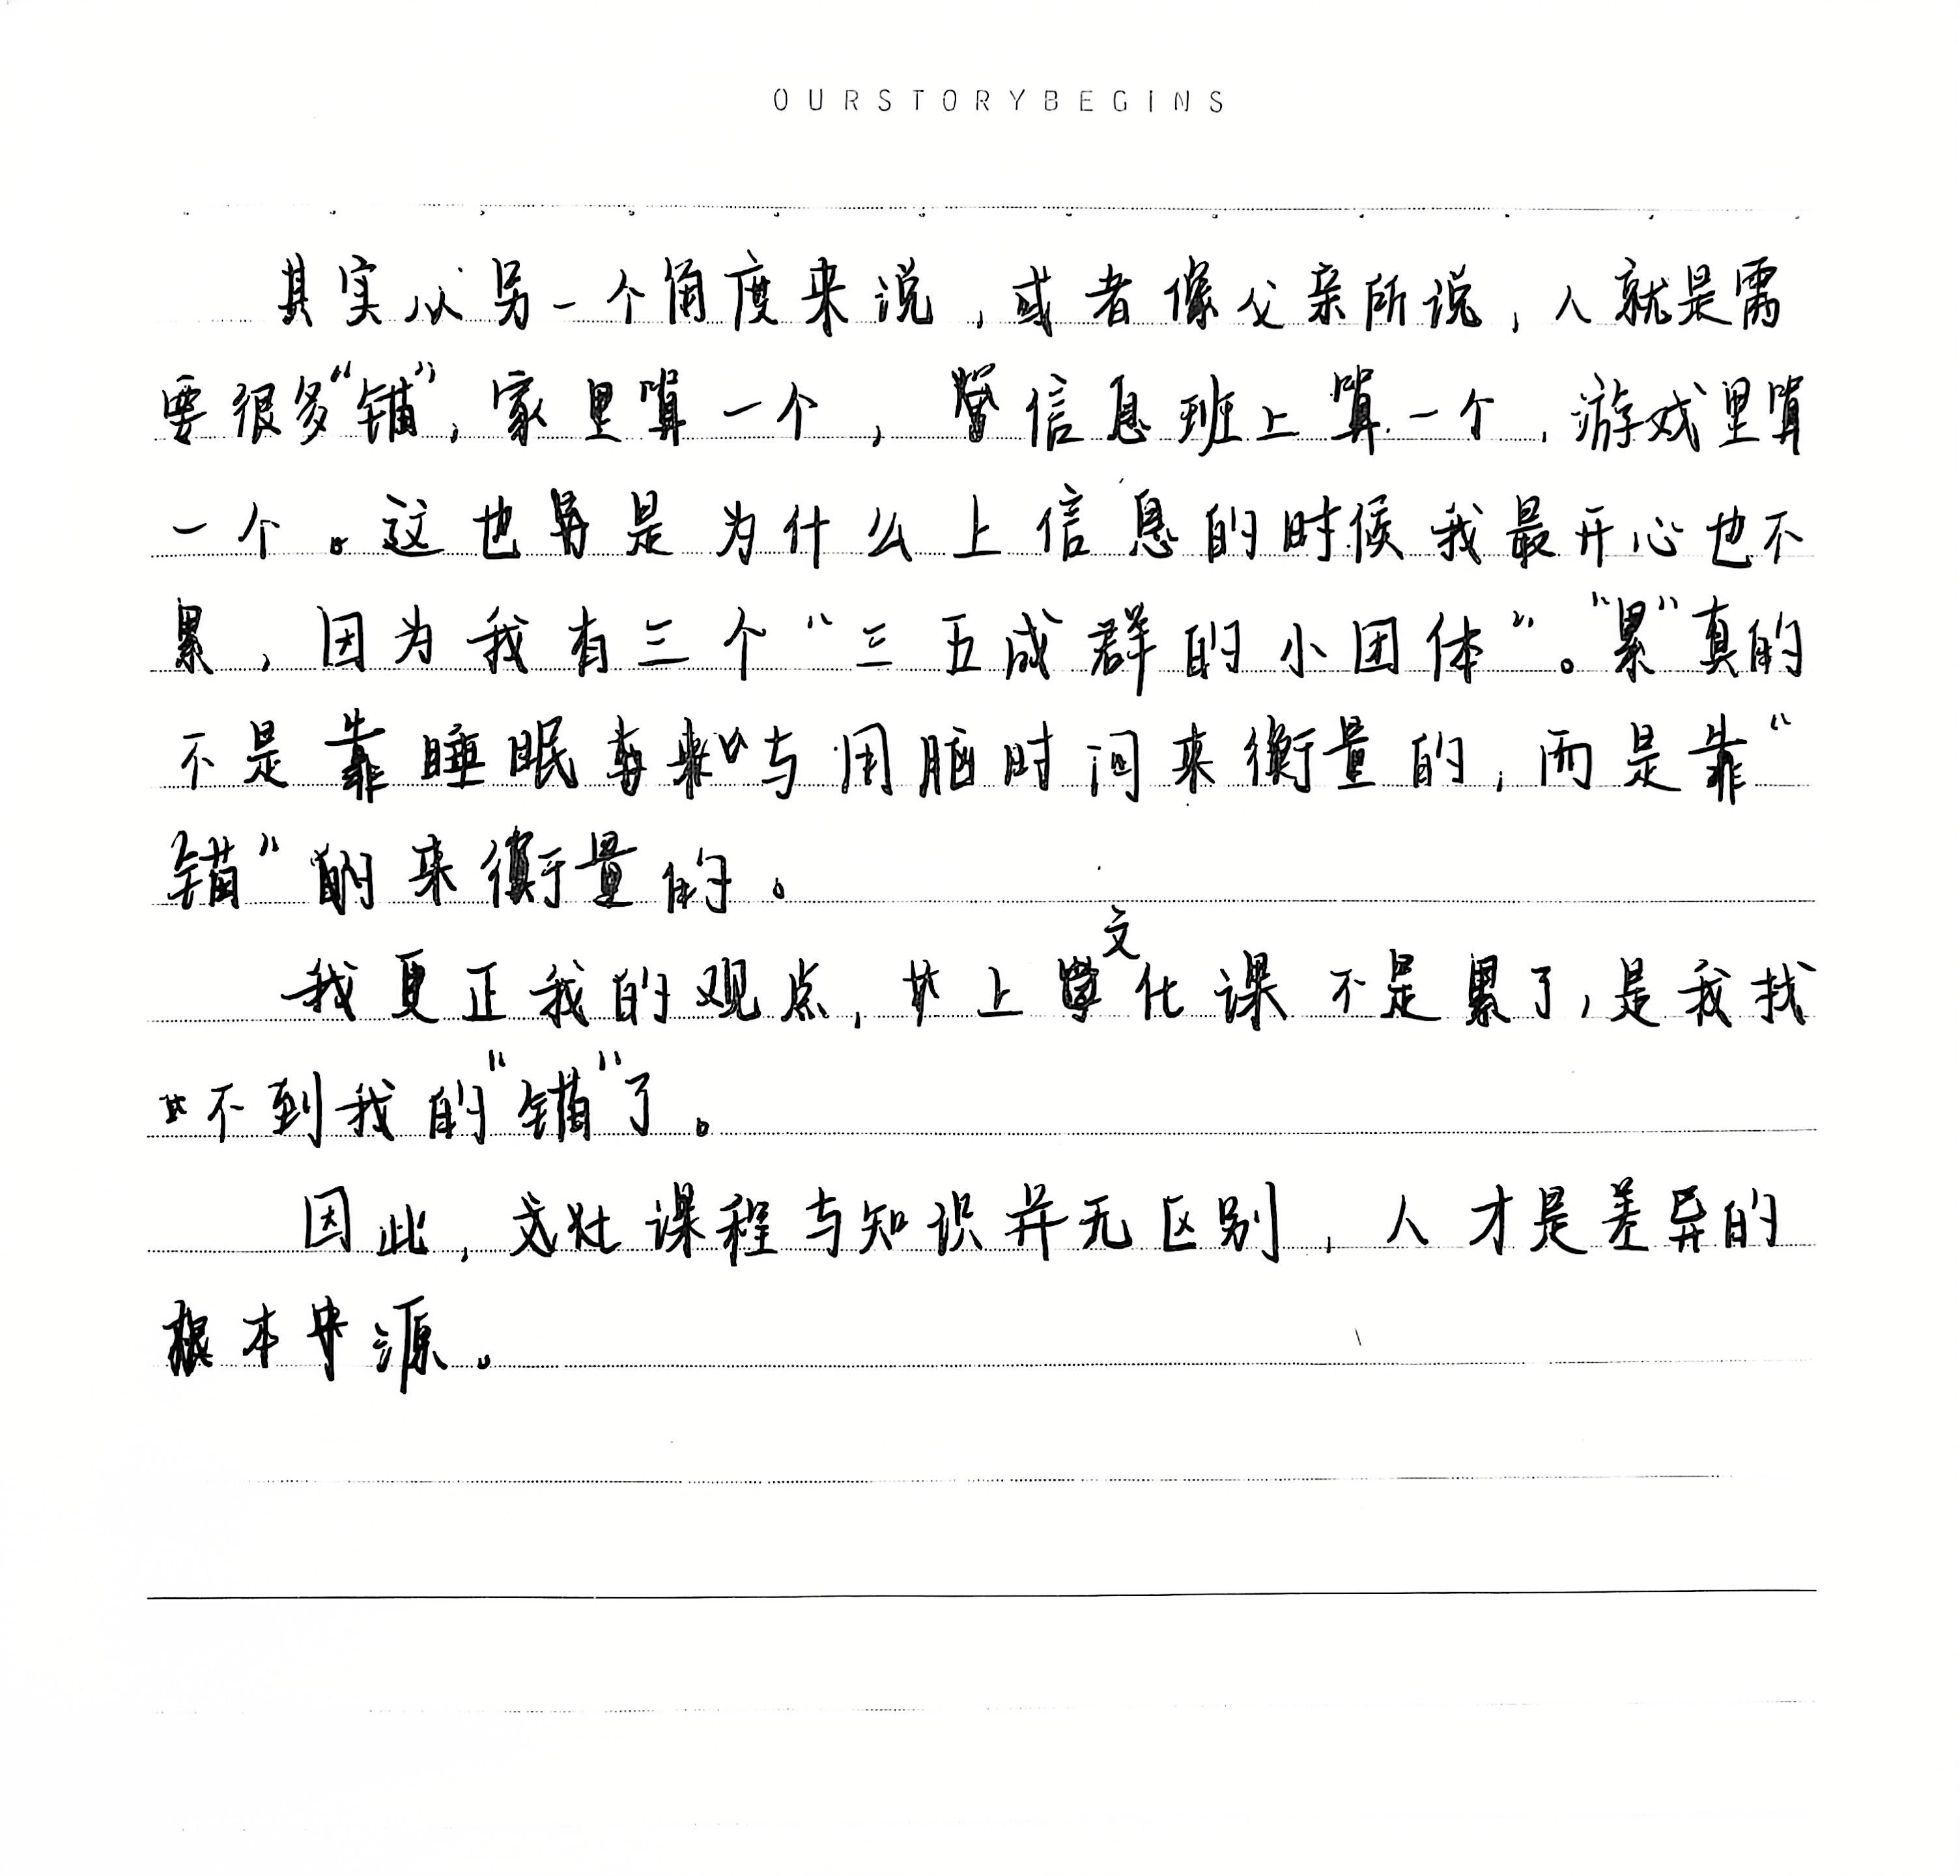 OURSTORYBEGINS
其实从另一个角度来说,或者像父亲所说,人就是需
要很多“锚”,家里算一个,信息班上算一个,游戏里算
一个。这也是为什么上信息的时候我最开心也不
累,因为我有三个“三五成群的小团体”。“累”真的
不是靠睡眠与用脑时间来衡量的,而是靠“
锚”来衡量的。
我更正我的观点,上文化课不是累了,是我找
不到我的“锚”了。
因此,课程与知识并无区别,人才是差异的
根本源。